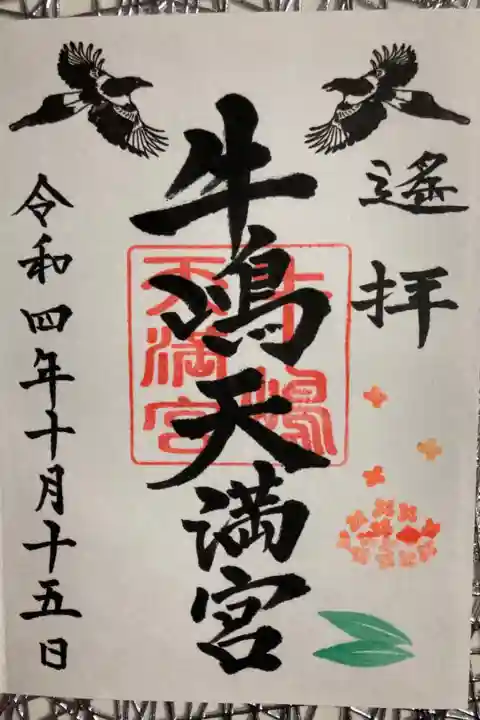 遙拝
牛嶋天満宮
天満宮
令和四年十月十五日